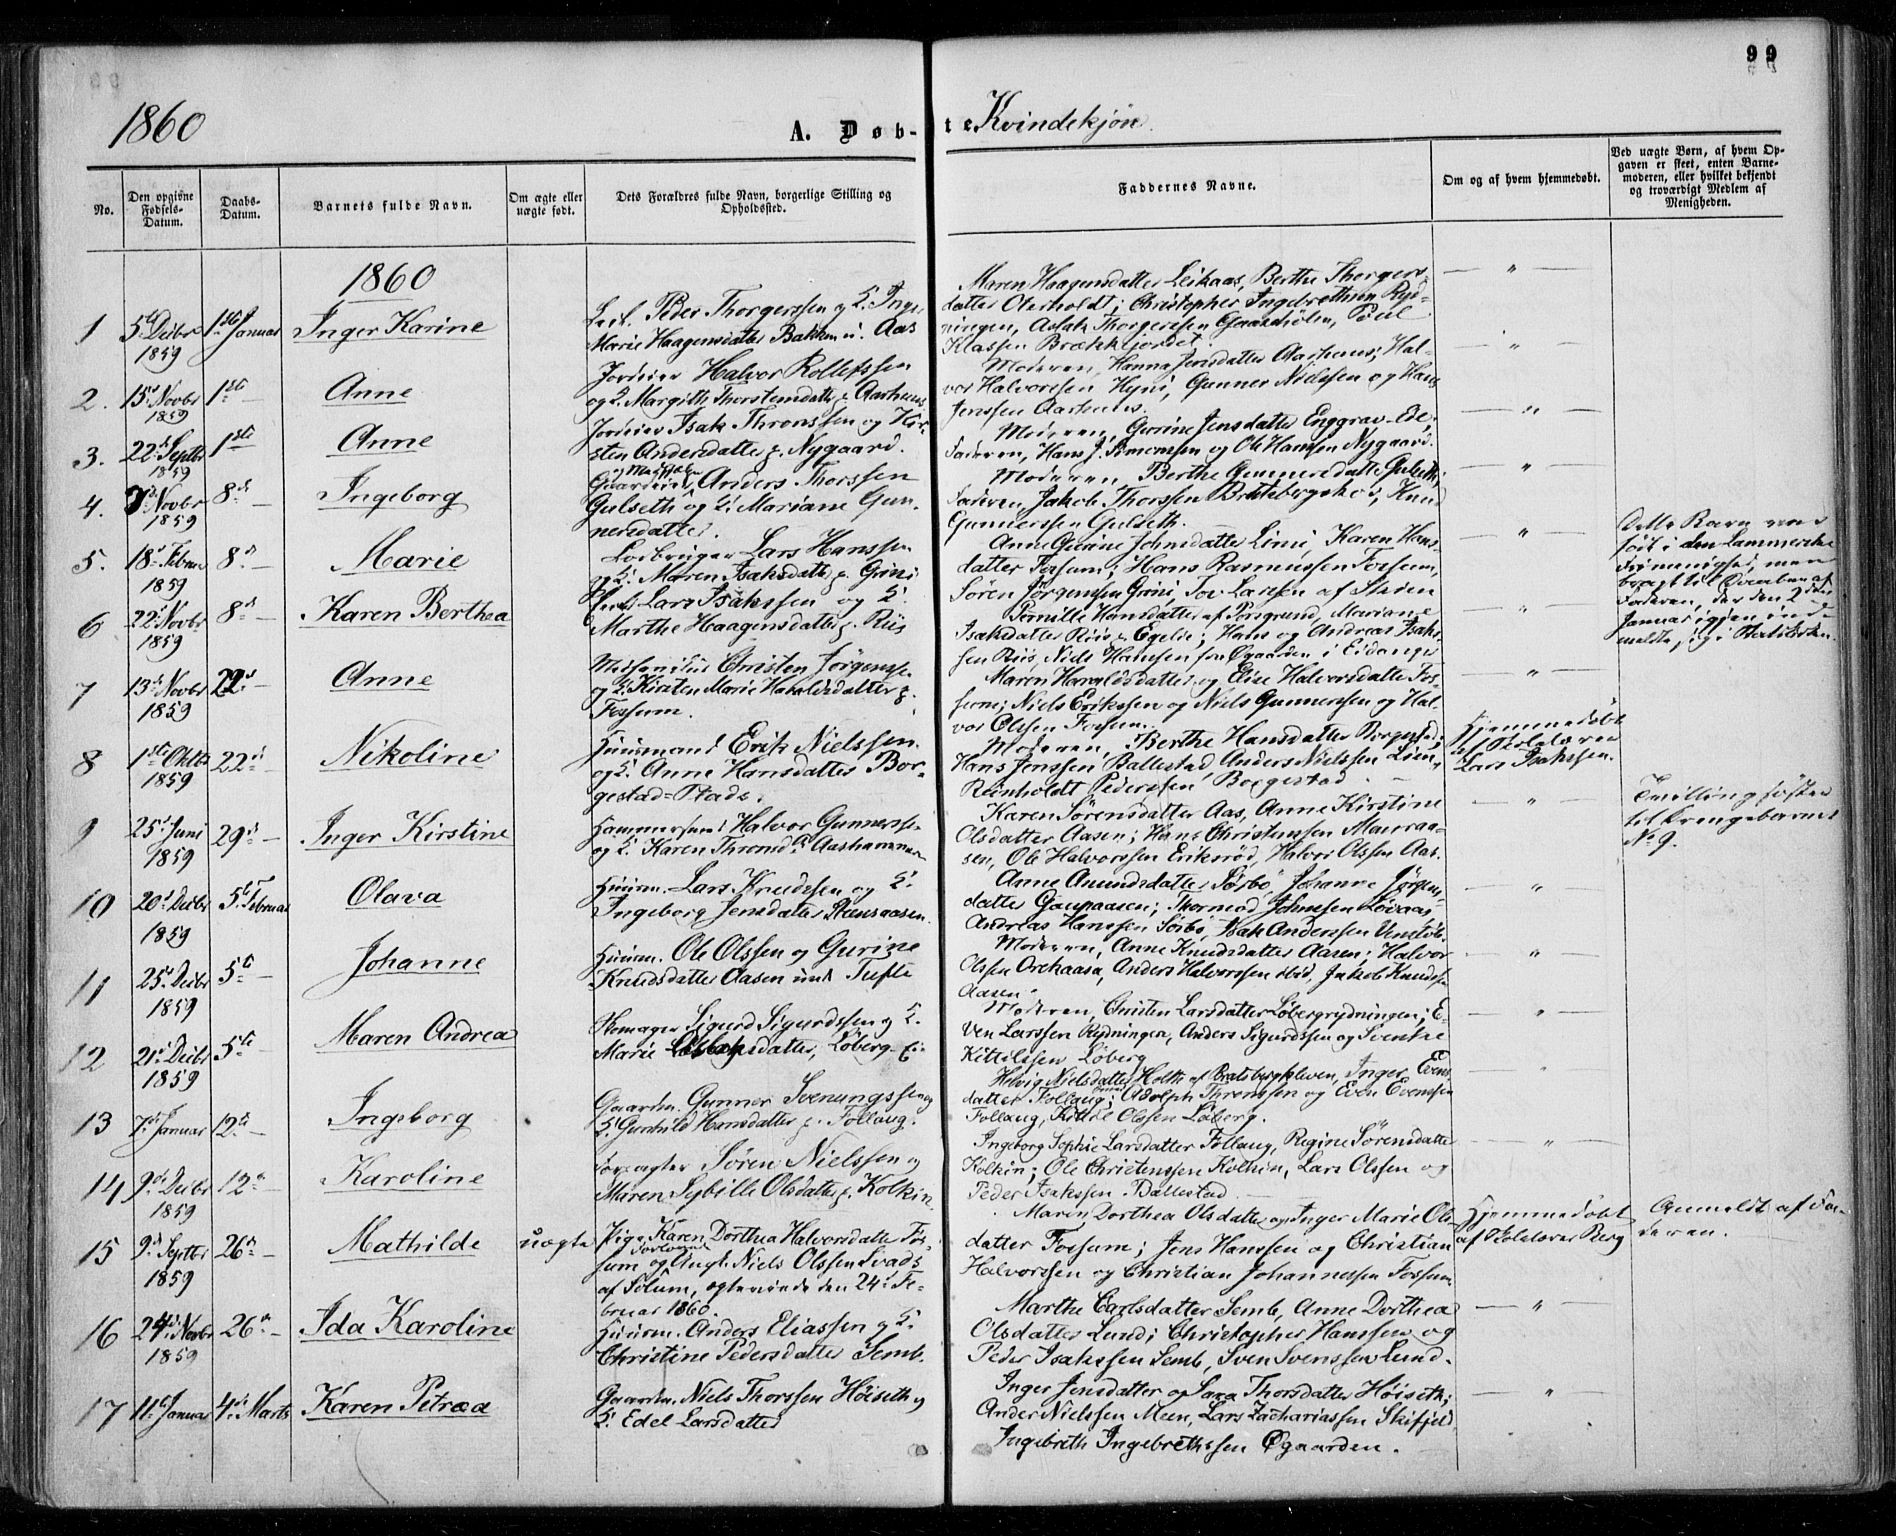 99
1860
A. Døb-te Kvindekjøn.
No.
Den opgivne Fødsels-Datum.
Daabs-Datum.
Barnets fulde Navn.
Om ægte eller uægte født.
Dets Forældres fulde Navn, borgerlige Stilling og Opholdssted.
Faddernes Navne.
Om og af hvem hjemmedøbt.
Ved uægte Børn, af hvem Opgaven er skeet, enten Barnemoderen, eller hvilket bekjendt og troværdigt Medlem af Menigheden.
1860
1 5te Decbr 1859 1ste Januar Inger Karine
Peder Thorgerssen og H. Inger
Marie Haagensdatter Bakken u. Aas
Maren Haagensdatter Leikaas, Berthe Thorgers-
datter Oterholdt; Christopher Ingebrethsen Ryd-
ningen, Aslak Thorgerssen Gaaseholm, Poul
Klassen Brækkejordet.
2. 15d Novbr 1859 1ste Anne
Halvor Rollefssen
og H. Margith Thorstensdatter p. Aarhuus
Moderen, Hanna Jensdatter Aarhuus; Hal-
vor Halvorssen Hyni, Gunner Nielssen og Hans
Jenssen Aarhuus.
3. 22d Septbr 1859 1ste Anne
Isak Thronssen og Kir-
sten Andersdatter p. Nygaard.
Moderen, Gurine Jensdatter Enggrav-Ede;
Faderen, Hans J. Simonssen og Ole Hanssen Nygaard.
4. Novbr 1859 8de Ingeborg
Anders Thorssen
Gulseth og H. Mariane Gun-
nersdatter.
Moderen, Berthe Gunnersdatter Gulseth;
Faderen, Jakob Thorssen Bratsbergskov, Knud
Gunnerssen Gulseth.
5. 18d Febru 1859 8d Marie
Lars Hanssen
og H. Maren Isaksdatter p. Grini
Anne Gurine Johnsdatter Limi, Karen Hans-
datter Fossum; Hans Rasmussen Fossum,
Søren Jørgenssen Grini, Tov Larssen af Skien
Dette Barn var
født i den Lammerske
Frimenighed, men
bragt til Daaben af
Faderen, der den 2den
Januar igjen ind-
meldte sig i Statskirken.
6 22d Novbr 1859 8d Karen Berthea
Lars Isakssen og H.
Marthe Haagensdatter p. Riis
Pernille Hansdatter af Porsgrund, Mariane
Isaksdatter Riis p. Egelie; Hans og Andreas Isaks-
sen Riis, Niels Hanssen fra Øgaarden i Eidanger
7 13d Novbr 1859 22d Anne
Christen Jørgenssen
og H. Kirsten Marie Haraldsdatter p.
Fossum.
Maren Haraldsdatter og Elise Halvorsdatter Fos-
sum; Niels Erikssen og Niels Gunnerssen og Hal-
vor Olssen Fossum.
8 1ste Oktbr 1859 22d Nikoline
Huusmand Erik Nielssen
og H. Anne Hansdatter Bor-
gestad-Plads.
Moderen, Berthe Hansdatter Borgestad;
Hans Jenssen Ballestad, Anders Nielssen Lien,
Reinholdt Pederssen Borgestad
Hjemmedøbt
af Skolelærer
Lars Isakssen.
9 25d Juni 1859 29d Inger Kirstine
Hammersmed Halvor Gunnerss.
og H. Karen Thronsdr. Aashammeren
Karen Sørensdatter Aas, Anne Kirstine
Olsdatter Aasen; Hans Christenssen Mauraa-
sen, Ole Halvorssen Eriksrød, Halvor Olssen Aas.
Tvillingsøster
til Drengebarnet
No 9.
10 20d Decbr 1859 5te Februar Olava
Huusm. Lars Knudssen og H.
Ingeborg Jensdatter Steensaasen.
Anne Amundsdatter Sørbø, Johanne Jørgens-
datter Gaupaasen; Thormod Johnssen Løvaas
Andreas Hanssen Sørbø, Isak Anderssen Venstøb.
11 25d Decbr 1859 5te Johanne
Huusm. Ole Olssen og Gurine
Knudsdatter Aasen und. Tufte
Moderen, Anne Knudsdatter Aasen; Halvor
Olssen Orekaasa, Anders Halvorssen ibid, Jakob Knudssen
Aasen
12 21d Decbr 1859 5te Maren Andrea
Skomager Sigurd Sigurdssen og H.
Marie datter, Løberg Ei.
Moderen, Christen Larsdatter Løbergrydningen; E-
ven Larssen Rydningen, Anders Sigurdssen og Svenke
Kittilssen Løberg
13 7d Januar 12te Ingeborg
Gaardm. Gunner Svenungssen og
H. Gunhild Hansdatter p. Follaug.
Helvig Nielsdatter Holth af Bratsbergkleven, Inger Evens-
datter Follaug; Adolph Thronssen og Even Evenssen
Follaug, Kittil Olssen Løberg.
14 9d Decbr 1859 12te Karoline
Forpagter Søren Nielssen og
Maren Sybille Olsdatter p. Kolkin
Ingeborg Sophie Larsdatter Follaug, Regine Sørensdatter
Kolkin; Ole Christenssen Kolkin, Lars Olssen og
Peder Isakssen Ballestad
15 9d Septbr 1859 26de Mathilde uægte
Pige Karen Dorthea Halvorsdatter Fos-
sum og Ungk. Niels Olssen Svads
af Solum, ægteviede den 24d Fe-
bruar 1860.
Maren Dorthea Olsdatter og Inger Marie Ols-
datter Fossum; Jens Hanssen og Christian
Halvorssen og Christian Johannessen Fossum
Hjemmedøbt
af Skolelærer Berg
Anmeldt af Fa-
deren.
16 24d Novbr 1859 26de Ida Karoline
Huusm. Anders Eliassen og H.
Christine Pedersdatter Semb.
Marthe Carlsdatter Semb, Anne Dorthea
Olsdatter Lund; Christopher Hanssen og
Peder Isakssen Semb, Sven Svenssen Lund.
17 11te Januar 4d Marts Karen Petrea
Gaardm. Niels Thorssen Høiseth og
H. Edel Larsdatter
Inger Jensdatter og Sara Thorsdatter Høiseth;
Ander Nielssen Meen, Lars Zachariassen Skifjeld
Ingebreth Ingebrethssen Øgaarden.